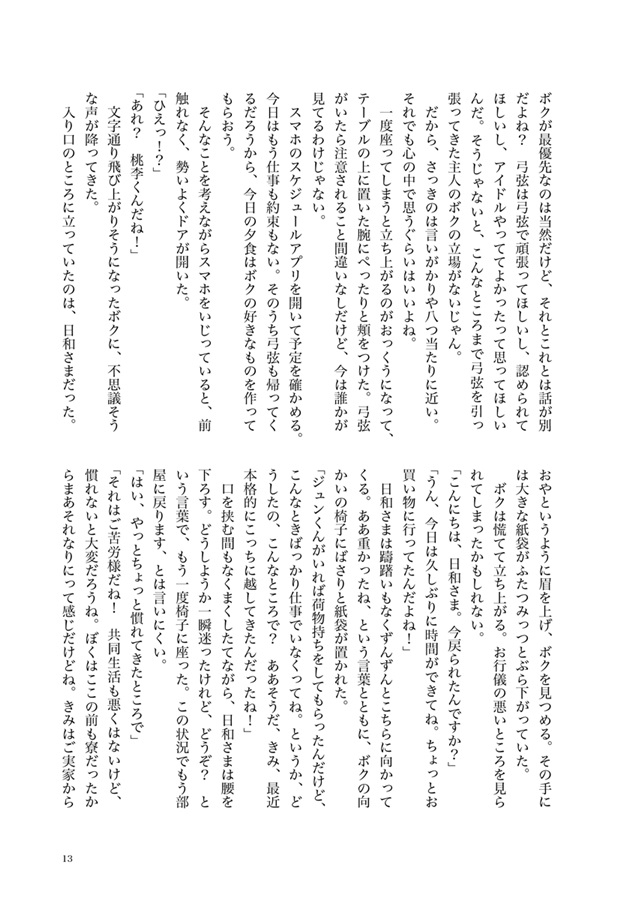 ボクが最優先なのは当然だけど、それとこれとは話が別
だよね？　弓弦は弓弦で頑張ってほしいし、認められて
ほしいし、アイドルやっててよかったって思ってほしい
んだ。そうじゃないと、こんなところまで弓弦を引っ
張ってきた主人のボクの立場がないじゃん。
　だから、さっきのは言いがかりや八つ当たりに近い。
それでも心の中で思うぐらいはいいよね。
　一度座ってしまうと立ち上がるのがおっくうになって、
テーブルの上に置いた腕にぺったりと頬をつけた。弓弦
がいたら注意されること間違いなしだけど、今は誰かが
見てるわけじゃない。
　スマホのスケジュールアプリを開いて予定を確かめる。
今日はもう仕事も約束もない。そのうち弓弦も帰ってく
るだろうから、今日の夕食はボクの好きなものを作って
もらおう。
　そんなことを考えながらスマホをいじっていると、前
触れなく、勢いよくドアが開いた。
「ひえっ！？」
「あれ？　桃李くんだね！」
　文字通り飛び上がりそうになったボクに、不思議そう
な声が降ってきた。
　入り口のところに立っていたのは、日和さまだった。
おやというように眉を上げ、ボクを見つめる。その手に
は大きな紙袋がふたつみっつとぶら下がっていた。
　ボクは慌てて立ち上がる。お行儀の悪いところを見ら
れてしまったかもしれない。
「こんにちは、日和さま。今戻られたんですか？」
「うん、今日は久しぶりに時間ができてね。ちょっとお
買い物に行ってたんだよね！」
　日和さまは躊躇いもなくずんずんとこちらに向かって
くる。ああ重かったね、という言葉とともに、ボクの向
かいの椅子にばさりと紙袋が置かれた。
「ジュンくんがいれば荷物持ちをしてもらったんだけど、
こんなときばっかり仕事でいなくってね。というか、ど
うしたの、こんなところで？　ああそうだ、きみ、最近
本格的にこっちに越してきたんだったね！」
　口を挟む間もなくまくしたてながら、日和さまは腰を
下ろす。どうしようか一瞬迷ったけれど、どうぞ？　と
いう言葉で、もう一度椅子に座った。この状況でもう部
屋に戻ります、とは言いにくい。
「はい、やっとちょっと慣れてきたところで」
「それはご苦労様だね！　共同生活も悪くはないけど、
慣れないと大変だろうね。ぼくはここの前も寮だったか
らまあそれなりにって感じだけどね。きみはご実家から
13